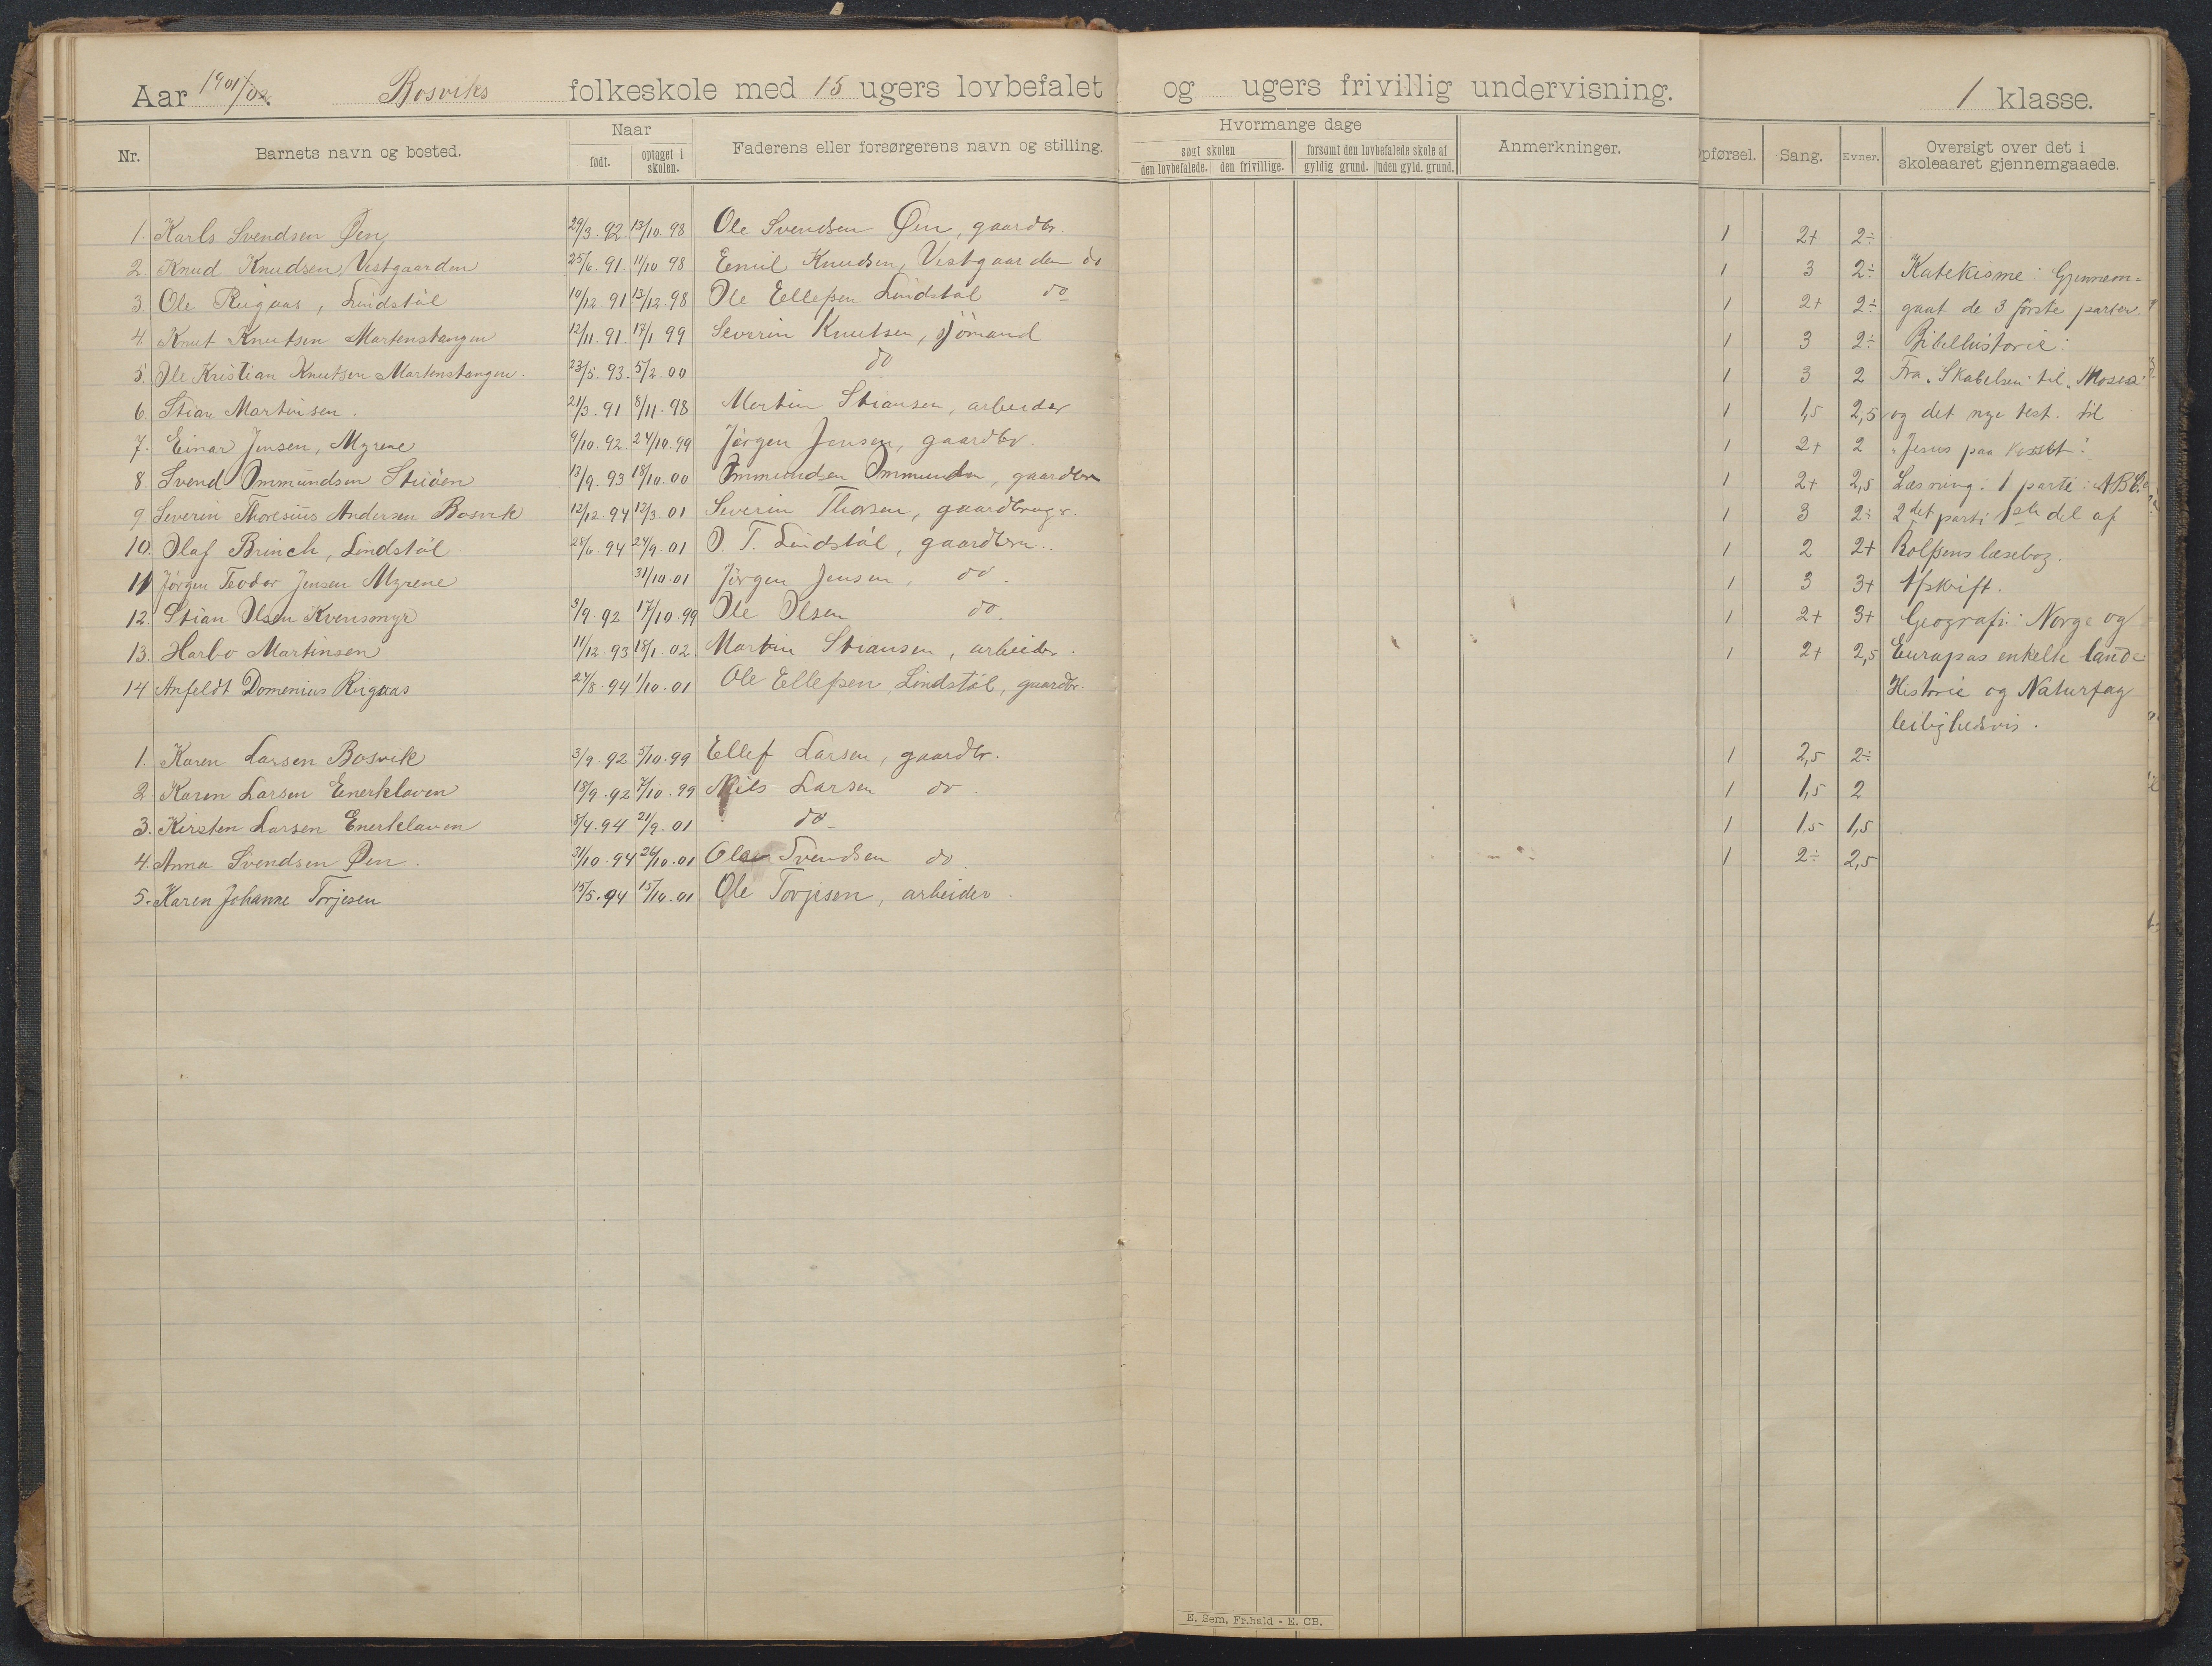 Aar 1901/02. Bosviks folkeskole med 15 ugers lovbefalet og ugers frivillig undervisning. 1 klasse.
Nr. Barnets navn og bosted. Naar Faderens eller forsørgerens navn og stilling. Hvormange dage Anmerkninger. pførsel. Sang. Evner. Oversigt over det i skoleaaret gjennemgaaede.
født. optaget i skolen. søgt skolen forsømt den lovbefalede skole af
den lovbefalede. den frivillige. gyldig grund. uden gyld. grund.
1. Karls Svendsen Øen 29/3.92. 13/10.98 Ole Svendsen Øen, gaardbr. 1 2+ 2÷
2 Knud Knudsen Vestgaarden 25/6.91. 11/10 98 Emil Knudsen, Vestgaarden do 1 3 2÷ Katekisme: Gjennem=
3. Ole Rugaas, Lindstøl 10/12 91 13/12 98 Ole Ellefsen Lindstøl do 1 2+ 2÷ gaat de 3 første parter.
4. Knut Knutsen Martenstangen 12/11.91 17/1 99 Severin Knutsen, sjömand 1 3 2÷ Bibelhistorie:
5. Ole Kristian Knutsen Martenstangen. 23/5.93. 5/2.00 do 1 3 2 Fra "Skabelsen" til "Moses"
6. Stian Martinsen. 21/3.91 8/11.98 Martin Stiansen, arbeider 1 1,5 2,5 og det nye test. til
7. Einar Jensen, Myrene 9/10.92. 24/10.99 Jörgen Jensen, gaardbr. 1 2+ 2 "Jesus paa korset".
8. Svend Ommundsen Stuöen 13/9.93 18/10.00 Ommundsen Ommundsen, gaardbr 1 2+ 2,5 Læsning: 1 parti: ABC.
9 Severin Thoresius Andersen Bosvik 12/12.94 12/3.01 Severin Thorsen, gaardbrugr. 1 3 2÷ 2det parti 1ste del af
10. Olaf Brinch, Lindstøl 28/6.94 24/9.01 O. T. Lindstøl, gaardbru.. 1 2 2+ Rolfsens læsebog.
11 Jørgen Teodor Jensen Myrene 31/10.01 Jörgen Jensen, do. 1 3 3+ Afskrift.
12. Stian Olsen Kvensmyr 3/9.92 17/10.99 Ole Olsen do. 1 2+ 3+ Geografi: Norge og
13. Harbo Martinsen 11/12.93 18/1.02. Martin Stiansen, arbeider. 1 2+ 2,5 Europas enkelte lande
14 Anfeldt Domenius Rugaas 24/8.94 1/10.01 Ole Ellefsen, Lindstøl, gaardbr. Historie og Naturfag
leilighedsvis.
1. Karen Larsen Bosvik 3/9.92 5/10.99 Ellef Larsen, gaardbr. 1 2,5 2÷
2. Karen Larsen Enerklaven 18/9.92 7/10.99 Nils Larsen do. 1 1,5 2
3. Kirsten Larsen Enerklaven 8/4.94 21/9.01 do 1 1,5 1,5
4. Anna Svendsen Øen. 31/10.94 26/10.01 Ole Svendsen do. 1 2÷ 2,5
5. Karen Johanne Torjesen 15/5.94 15/10.01 Ole Torjesen, arbeider.
E. Sem, Fr.hald - E. CB.